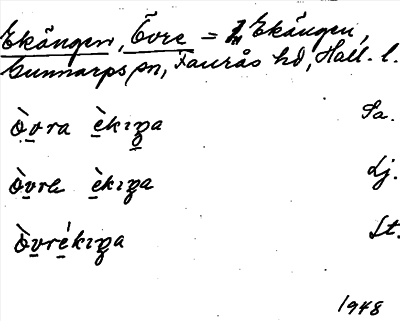 Ekängen, Övre = 1/4 Ekängen,
Gunnarps sn, Faurås hd, Hall. l.
òvra èkıŋa Sa.
òvrɐ èkıŋa Lj.
òvrékıŋa St.
1948